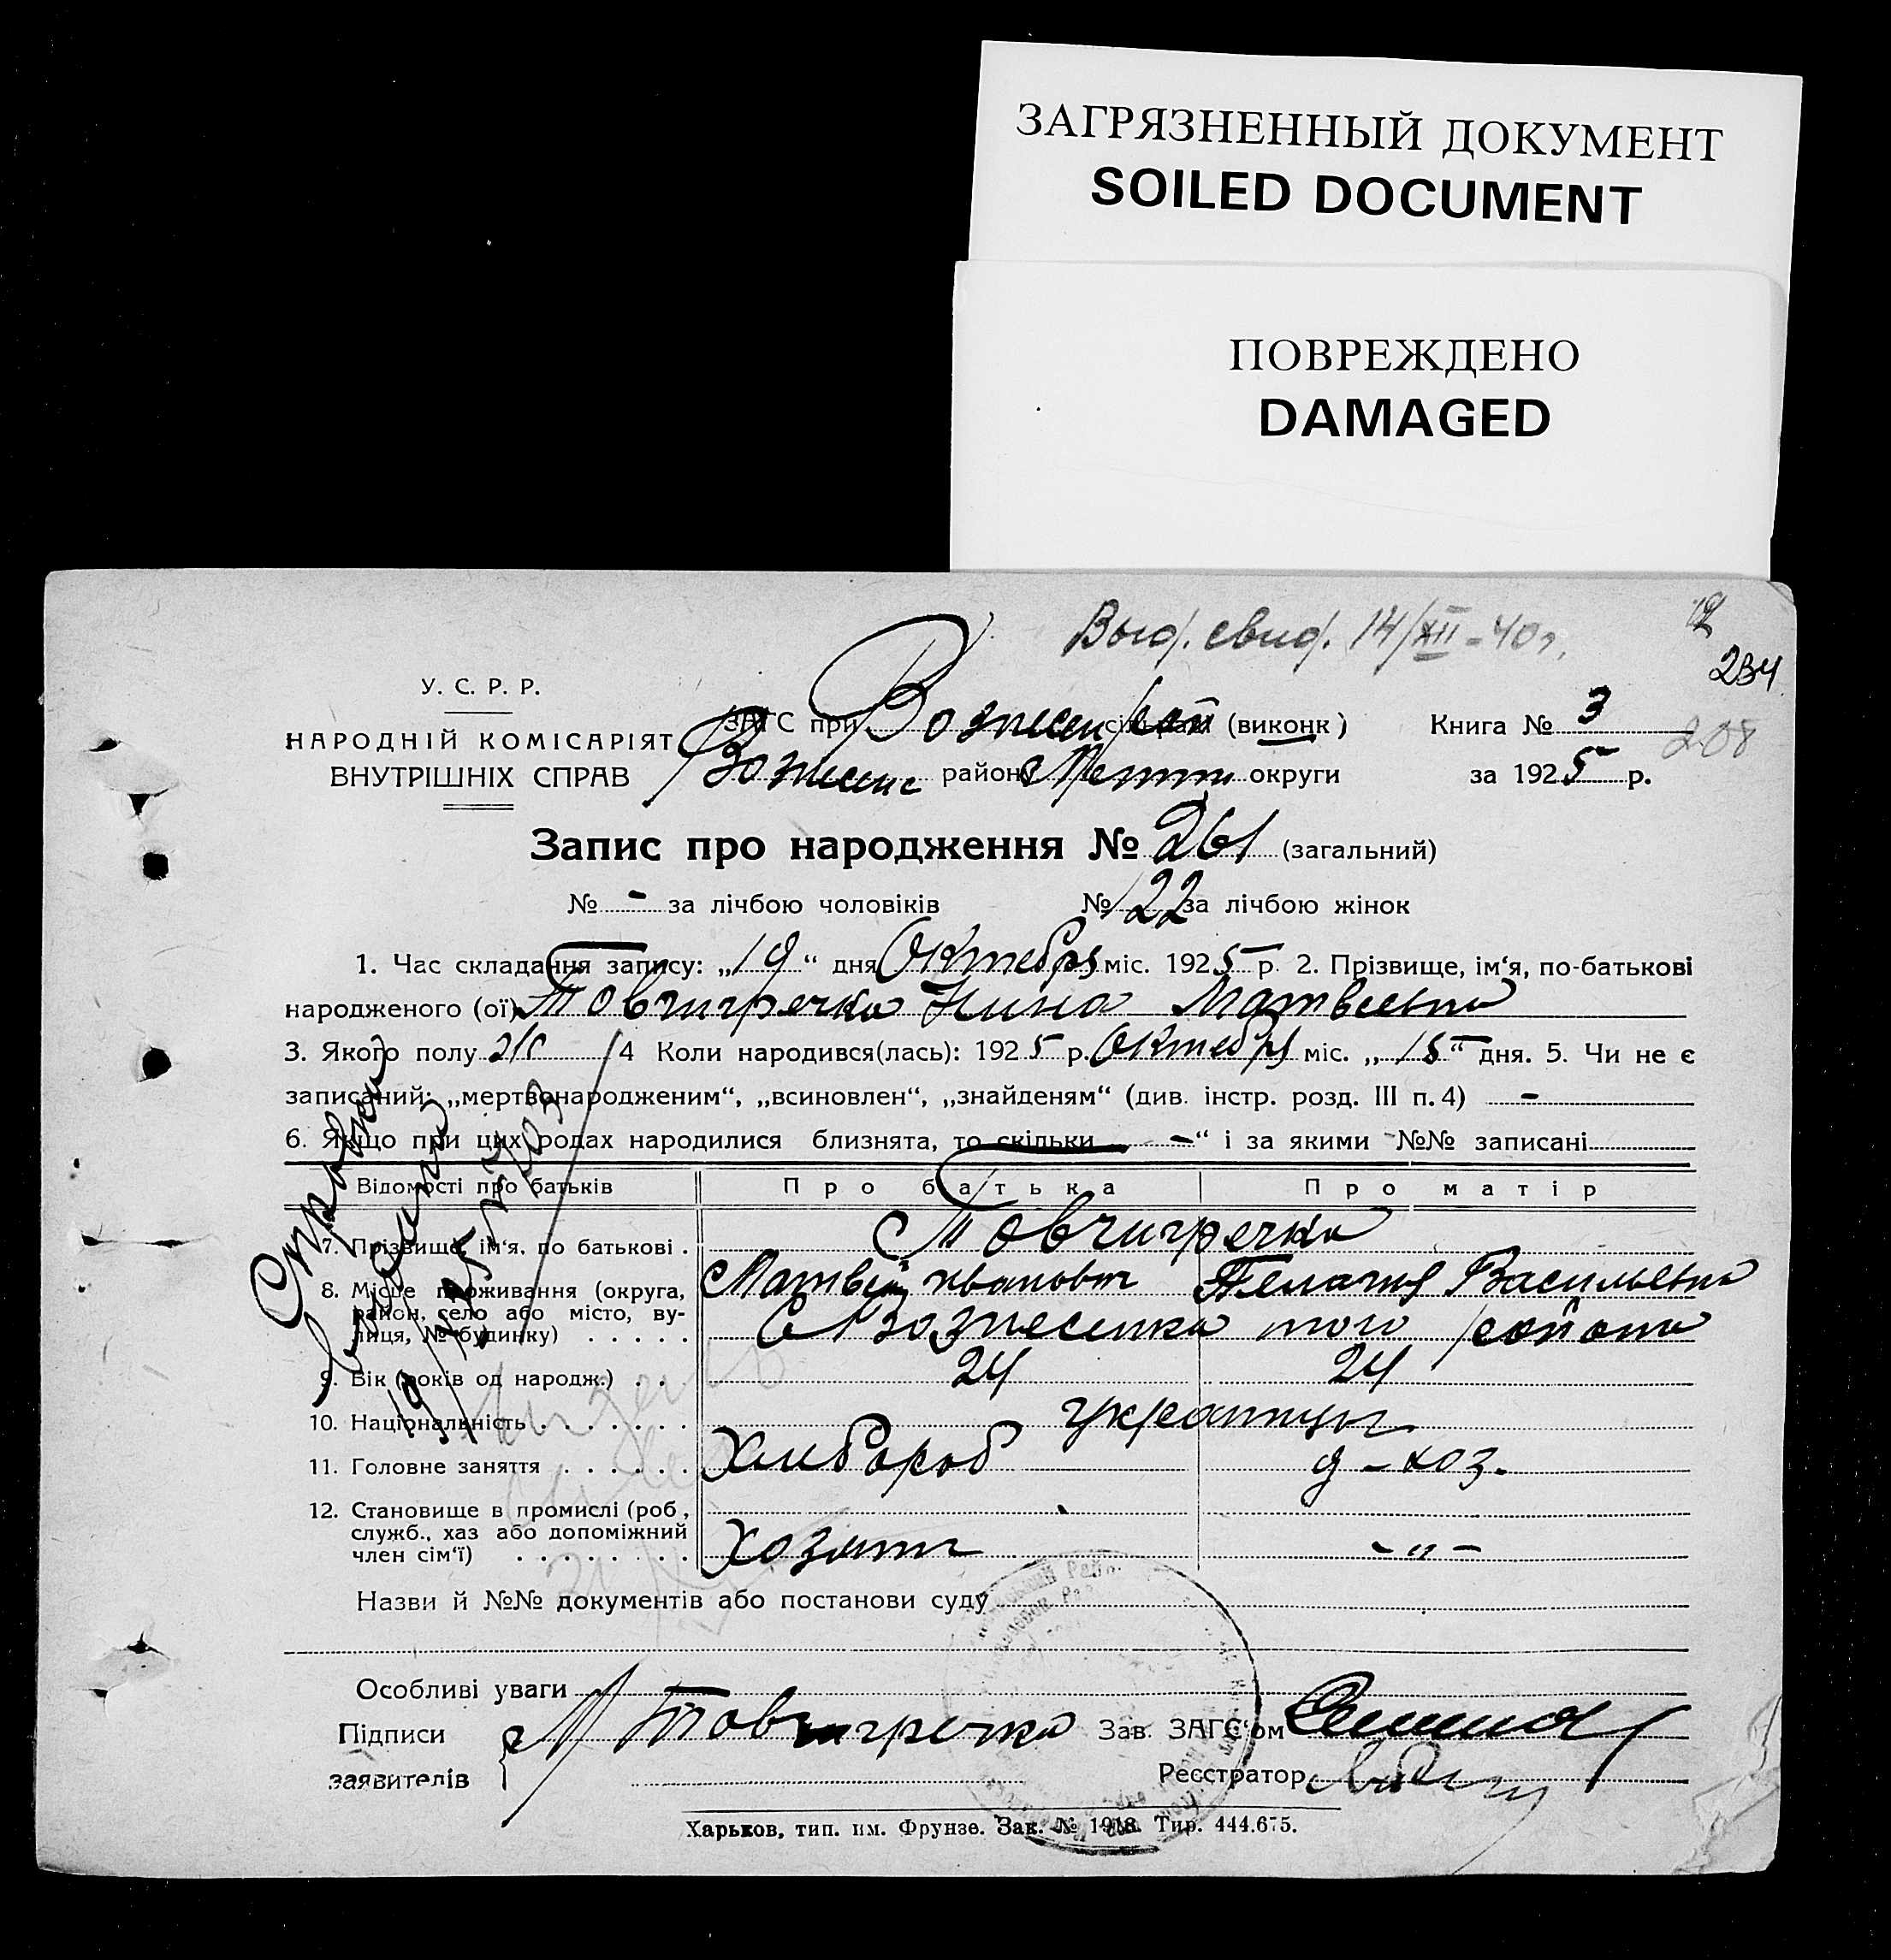 ЗАГРЯЗНЕННЫЙ ДОКУМЕНТ
SOILED DOCUMENT
ПОВРЕЖДЕНО
DAMAGED
Выд. свид. 14/XII-40 г.
234
У. С. Р. Р.
НАРОДНІЙ КОМІСАРІЯТ
ВНУТРІШНІХ СПРАВ
ЗАГС при (виконк)
району округи
Книга № 3
208
за 1925 р.
Запис про народження № 261 (загальний)
№ - за лічбою чоловіків № 122 за лічбою жінок
1. Час складання запису: „19“ дня Октебря міс. 1925 р. 2. Прізвище, ім‘я, по-батькові
народженого (ої) Товчигречка Нина Матвеевна
3. Якого полу ж 4 Коли народився(лась): 1925 р. Октебря міс. „15“ дня. 5. Чи не є
записаний: „мертвонародженим“, „всиновлен“, „знайденям“ (див. інстр. розд. III п. 4) -
6. Якщо при цих родах народилися близнята, то скільки -“ і за якими №№ записані
Відомості про батьків Про батька Про матір
7. Прізвище, ім‘я, по батькові . Товчигречка
Матвій Иванович Пелагия Васильевна
8. Місце проживання (округа,
район, село або місто, ву-
лиця, № будинку) . . . . . С Вознесенка того района
9. Вік (років од народж.) . . 24 24
10. Національність . . . . . . . украинцы
11. Головне заняття . . . . . . Хлибороб д-хоз.
12. Становище в промислі (роб,
служб., хаз або допоміжний
член сім‘ї) . . . . . . . . Хозяин -"-
Справка
видана
19
Назви й №№ документів або постанови суду
Особливі уваги
Підписи
заявителів
М Товчигречка
Зав. ЗАГС‘ом
Реєстратор
Харьков, тип. им. Фрунзе. Зак. № 1918. Тир. 444.675.